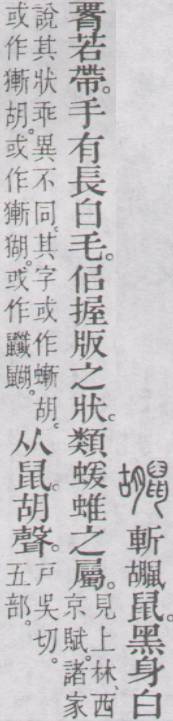 䶅 斬䶅鼠。黑身白
若帶。手有長白毛。佀握版之狀。類蝯蜼之屬。見上林、西
京賦。諸家
說其狀乖異不同。其字或作螹胡。
或作獑胡。或作獑猢。或作䶫䶅。
从鼠。胡聲。戶吳切。
五部。